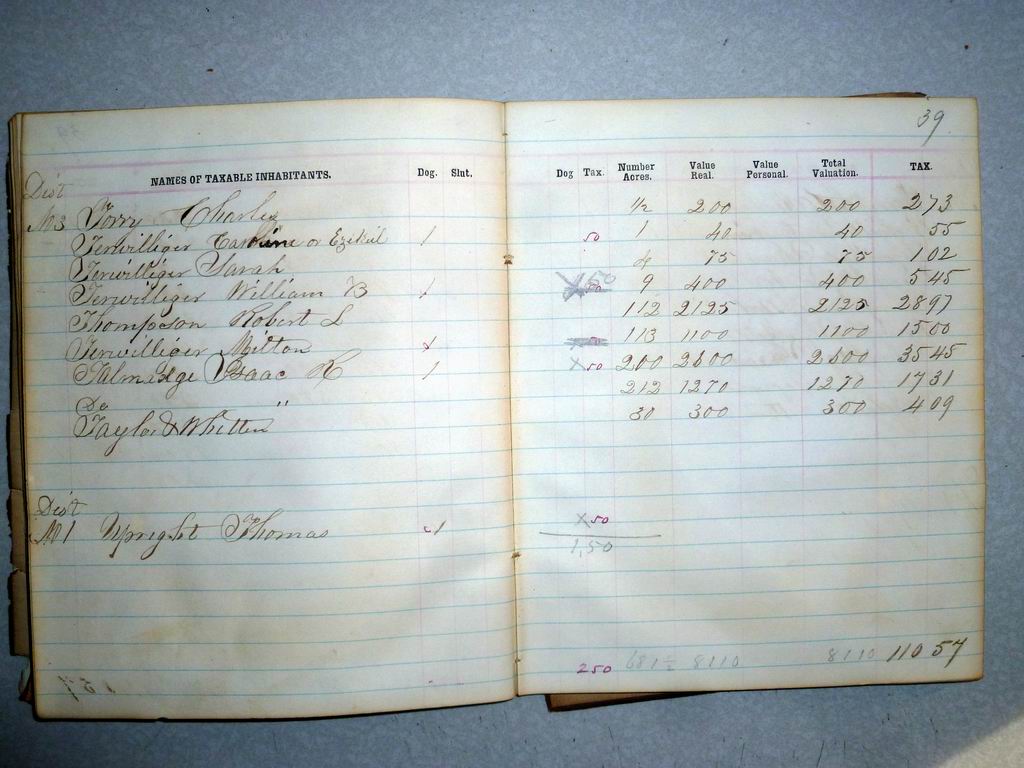 39
NAMES OF TAXABLE INHABITANTS. Dog. Slut. Dog Tax. Number Acres. Value Real. Value Personal. Total Valuation. TAX.
Dist
No 3 Torry Charles 1/2 200 200 2 73
Terwilliger Caroline or Ezekiel 1 50 1 40 40 55
Terwilliger Sarah 4 75 75 1 02
Terwilliger William B 1 50 9 400 400 5 45
Thompson Robert L 112 2125 2125 28 97
Terwilliger Milton 113 1100 1100 15 00
Talmadge Isaac R 1 X 50 200 2600 2600 35 45
Do " 212 1270 1270 17 31
Taylor & Whitten 30 300 300 4 09
Dist
No 1 Upright Thomas 1 X 50
1,50
2 50 681 1/2 8110 8110 110 57